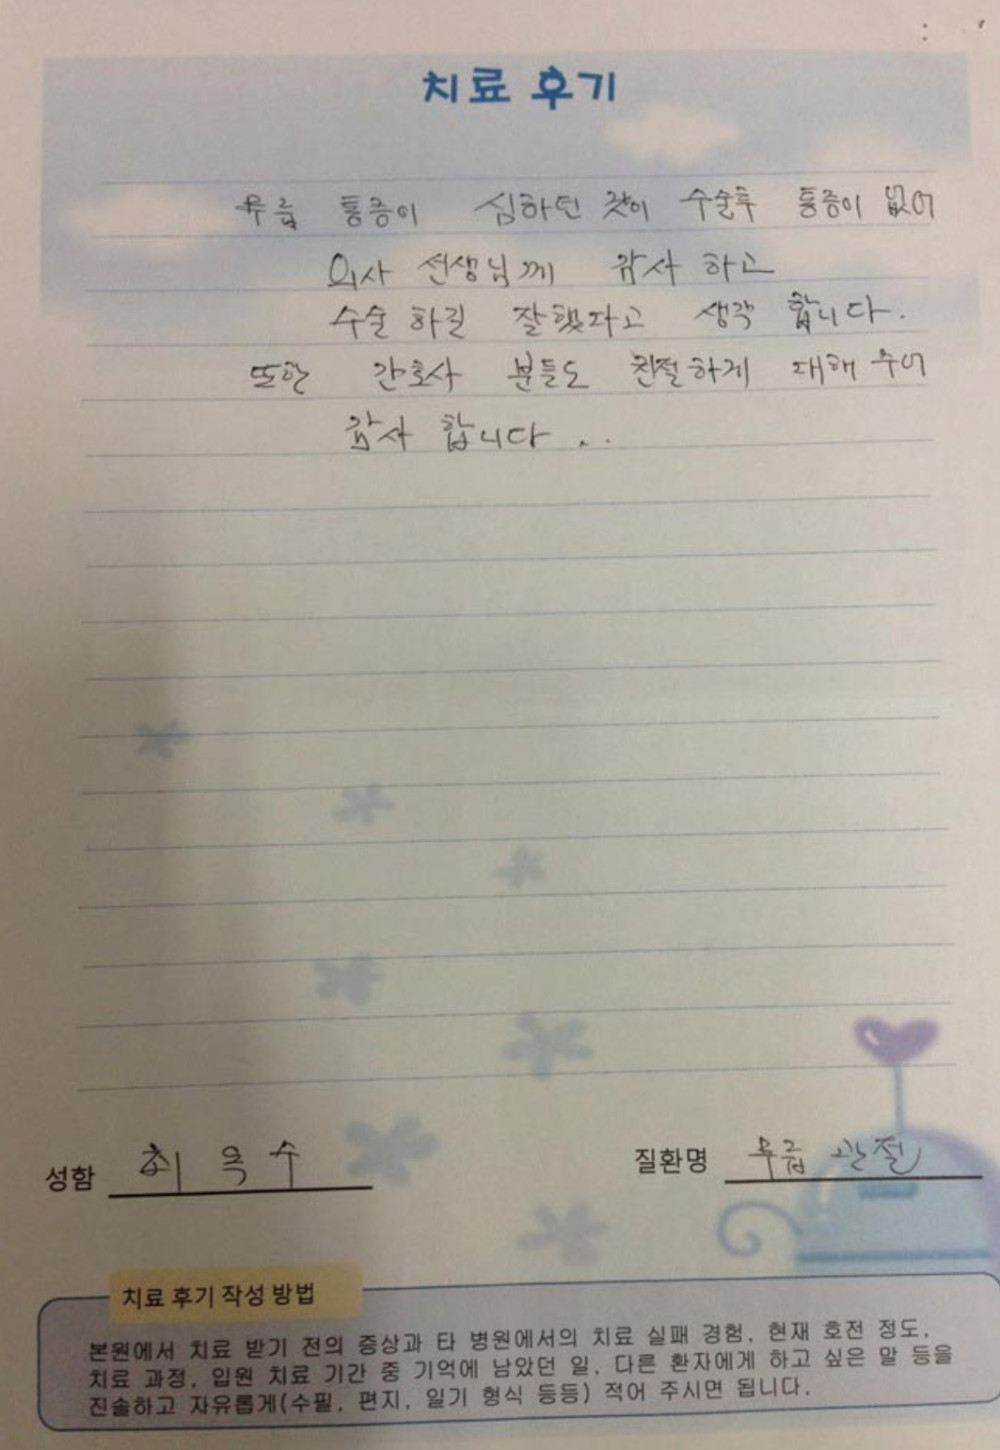 치료 후기
무릎 통증이 심하던 것이 수술후 통증이 없어
의사 선생님께 감사 하고
수술 하길 잘했다고 생각 합니다.
또한 간호사 분들도 친절하게 대해 주어
감사 합니다 . .
성함 최 옥 수 질환명 무릎 관절
치료 후기 작성 방법
본원에서 치료 받기 전의 증상과 타 병원에서의 치료 실패 경험, 현재 호전 정도,
치료 과정, 입원 치료 기간 중 기억에 남았던 일, 다른 환자에게 하고 싶은 말 등을
진솔하고 자유롭게(수필, 편지, 일기 형식 등등) 적어 주시면 됩니다.